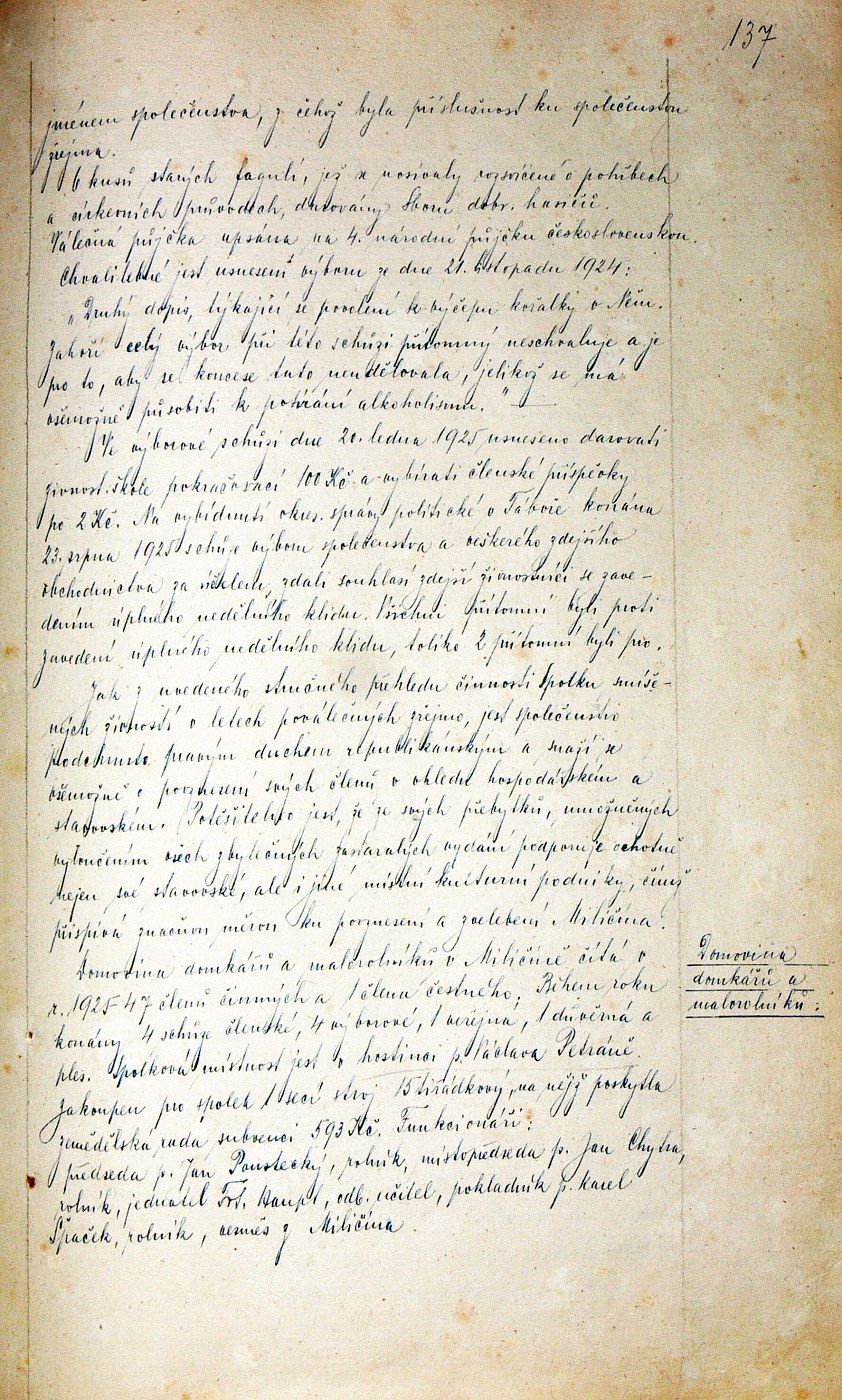 137
jménem společenstva, z čehož byla příslušnost ku společenstvu
zřejma.
6 kusů starých fagulí, jež se nosívaly rozsvícené o pohřbech
a církevních průvodech, darovány Sboru dobr. hasičů.
Válečná půjčka upsána na 4. národní půjčku československou.
Chvalitebné jest usnesení výboru ze dne 21. listopadu 1924:
„Druhý dopis, týkající se povolení k výčepu kořalky v Něm.
Zahoří celý výbor při této schůzi přítomný neschvaluje a je
pro to, aby se koncese tato neudělovala, jelikož se má
všemožně působiti k potírání alkoholismu."
Ve výborové schůzi dne 20. ledna 1925 usneseno darovati
živnost. škole pokračovací 100 Kč. a vybírati členské příspěvky
po 2 Kč. Na vybídnutí okres. správy politické v Táboře konána
23. srpna 1925 schůze výboru společenstva a veškerého zdejšího
obchodnictva za účelem, zdali souhlasí zdejší živnostníci se zave-
dením úplného nedělního klidu. Všichni přítomní byli proti
zavedení úplného nedělního klidu, toliko 2 přítomní byli pro.
Jak z uvedeného stručného přehledu činnosti Spolku smíše-
ných živností v letech poválečných zřejmo, jest společenstvo
podchnuto pravým duchem republikánským a snaží se
všemožně o povznesení svých členů v ohledu hospodářském a
stavovském. Potěšitelno jest, že ze svých přebytků, umožněných
vyloučením všech zbytečných zastaralých vydání podporuje ochotně
nejen své stavovské, ale i jiné místní kulturní podniky, čímž
přispívá značnou měrou ku povznesení a zvelebení Miličína.
Domovina
domkářů a
malorolníků:
Domovina domkářů a malorolníků v Miličíně čítá v
r. 1925 47 členů činných a 1 člena čestného. Během roku
konány 4 schůze členské, 4 výborové, 1 veřejná, 1 důvěrná a
ples. Spolková místnost jest v hostinci p. Václava Petráně.
Zakoupen pro spolek 1 secí stroj 15tiřádkový, na nějž poskytla
zemědělská rada subvenci 593 Kč. Funkcionáři:
předseda p. Jan Poustecký, rolník, místopředseda p. Jan Chytra,
rolník, jednatel Frt. Haupt, odb. učitel, pokladník p. Karel
Špaček, rolník, vesměs z Miličína.